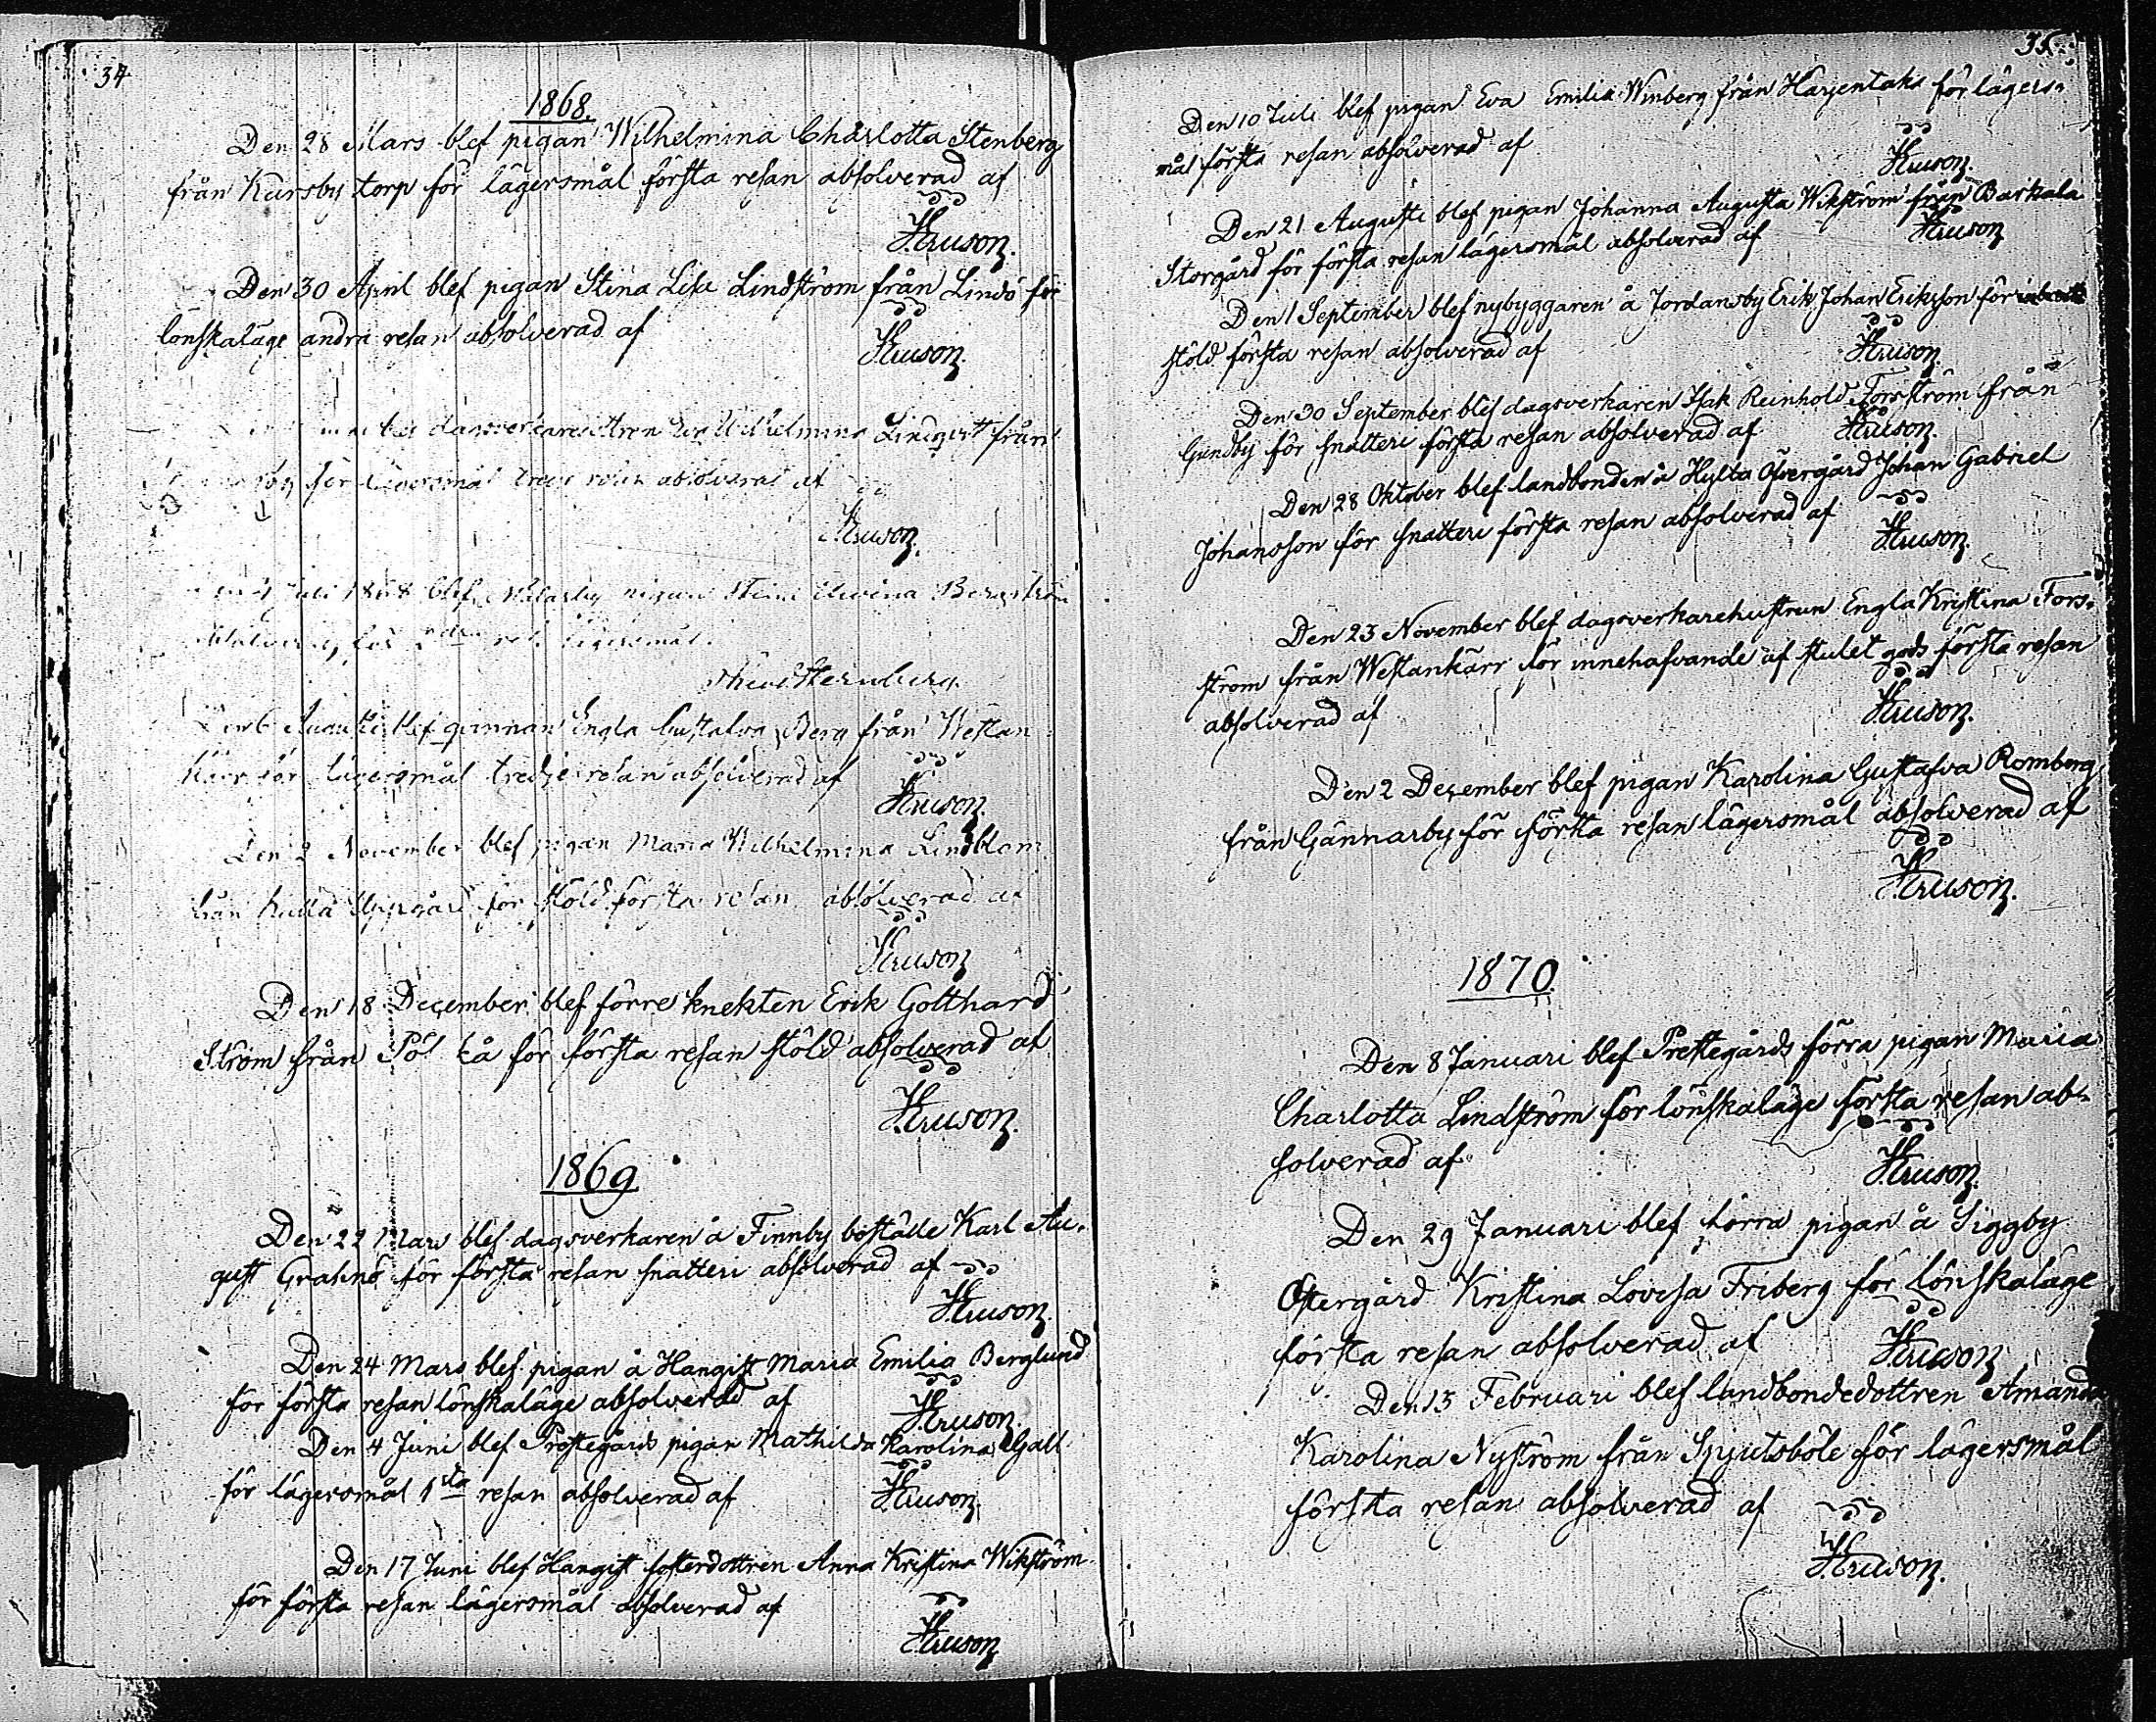 34
1868.
Den 28 Mars blef pigan Wilhelmina Charlotta Stenberg
från Karsby torp för lägersmål första resan absolverad af
Kruson.
Den 30 April blef pigan Stina Lisa Lindström från Lindö för
lönskaläge andra resan absolverad af
Kruson.
blef dagsverkare Wilhelmina Lindqvist från
för lägersmål resan absolverad af
Kruson.
Juli 1868 blef pigan Stina Bergström
för 2dra res. lägersmål.
Sternberg.
Den 6 Augusti blef qvinnan Engla Gustafva Berg från Westan
kärr för lägersmål tredje resan absolverad af
Kruson.
Den 2 November blef pigan Maria Wilhelmina Lindblom
från Uppgård för stöld första resan absolverad af
Kruson
Den 18 December blef förre knekten Erik Gotthard
Ström från för första resan stöld absolverad af
Kruson.
1869
Den 22 Mars blef dagsverkaren å Finnby boställe Karl Au-
gust Grahnö för första resan snatteri absolverad af
Kruson.
Den 24 Mars blef pigan å Hangist Maria Emilia Berglund
för första resan lönskaläge absolverad af
Kruson.
Den 4 Juni blef Prostegårds pigan Mathilda Karolina Gall
för lägersmål 1sta resan absolverad af
Kruson.
Den 17 Juni blef Hangist fosterdottren Anna Kristina Wikström
för första resan lägersmål absolverad af
Kruson
35
Den 10 Juli blef pigan Eva Emilia Winberg från Harjentaka för lägers-
mål första resan absolverad af
Kruson.
Den 21 Augusti blef pigan Johanna Augusta Wikström från Barkala
Storgård för första resan lägersmål absolverad af
Kruson
Den 1 September blef nybyggaren å Jordansby Erik Johan Eriksson för
stöld första resan absolverad af
Kruson.
Den 30 September blef dagsverkaren Isak Reinhold Forsström från
Gundby för snatteri första resan absolverad af
Kruson.
Den 28 Oktober blef landbonden å Hylta Öfvergård Johan Gabriel
Johansson för snatteri första resan absolverad af
Kruson.
Den 23 November blef dagsverkarehustrun Engla Kristina Fors-
ström från Westankärr för innehafvande af stulet gods första resan
absolverad af
Kruson.
Den 2 December blef pigan Karolina Gustafva Romberg
från Gännarby för första resan lägersmål absolverad af
Kruson.
1870
Den 8 Januari blef Prestegårds förra pigan Maria
Charlotta Lindström för lönskaläge första resan ab-
solverad af
Kruson.
Den 29 Januari blef förra pigan å Siggby
Östergård Kristina Lovisa Friberg för lönskaläge
första resan absolverad af
Kruson
Den 13 Februari blef landbondedottren Amanda
Karolina Nyström från Spjutsböle för lägersmål
första resan absolverad af
Kruson.